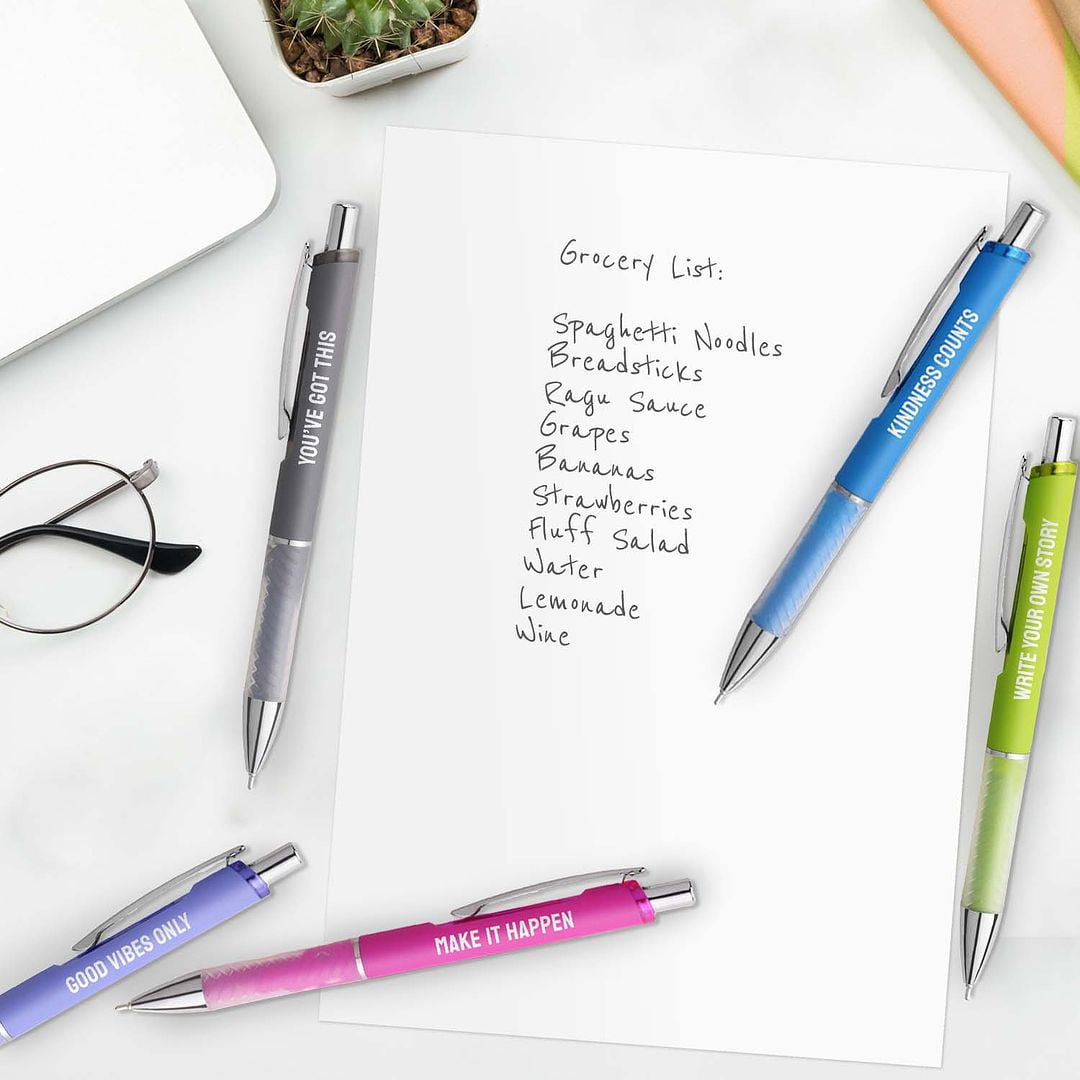 Grocery List:
Spaghetti Noodles
Breadsticks
Ragu Sauce
Grapes
Bananas
Strawberries
Fluff Salad
Water
Lemonade
Wine
YOU'VE GOT THIS
KINDNESS COUNTS
WRITE YOUR OWN STORY
GOOD VIBES ONLY
MAKE IT HAPPEN